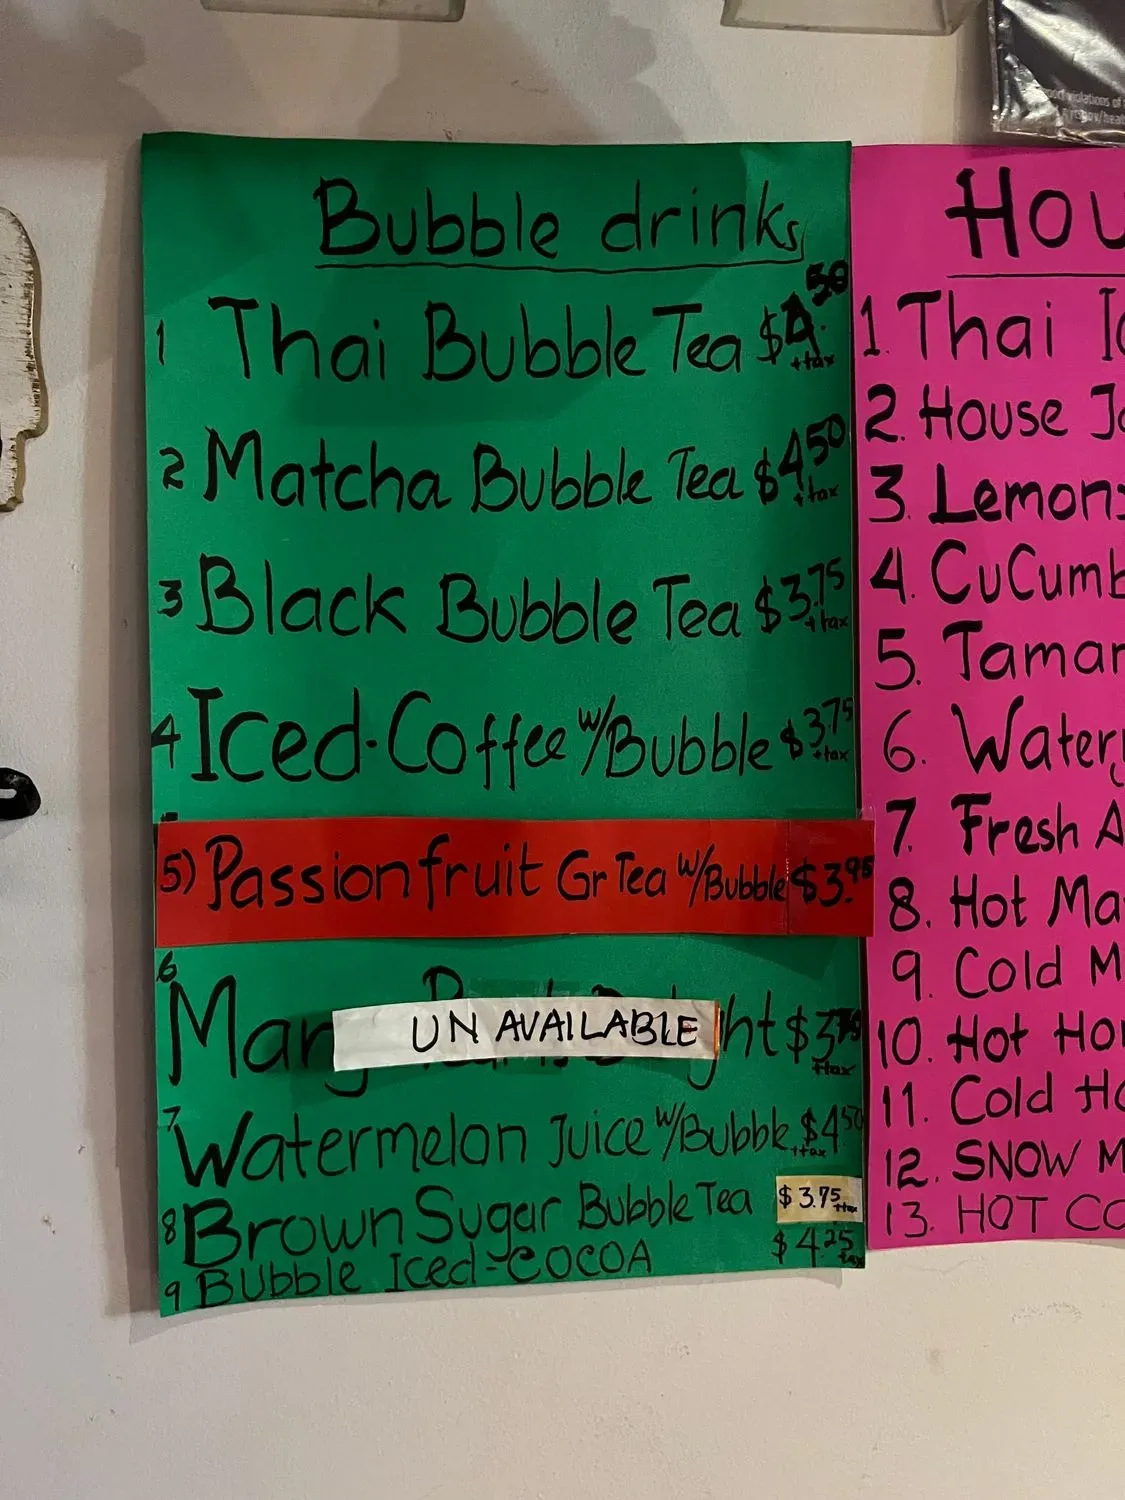 Bubble drinks
1 Thai Bubble Tea $4.50 +tax
2 Matcha Bubble Tea $4.50 +tax
3 Black Bubble Tea $3.75 +tax
4 Iced-Coffee w/Bubble $3.75 +tax
5) Passionfruit Gr Tea w/Bubble $3.95
6
UNAVAILABLE
+tax
7 Watermelon Juice w/Bubble +tax $4.50
8 Brown Sugar Bubble Tea $3.75 +tax
9 BUBBLE Iced-COCOA $4.25 +tax
1. Thai
2. House
3.
4.
5.
6.
7. Fresh
8. Hot
9. Cold
10. Hot
11. Cold
12. SNOW
13. HOT
violations of